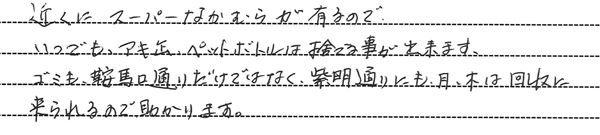 近くに スーパーなかむらが有るので
いつでも、アキ缶、ペットボトルは捨てる事が出来ます。
ゴミも、鞍馬口通りだけではなく、紫明通りにも、月、木は回収に
来られるので助かります。